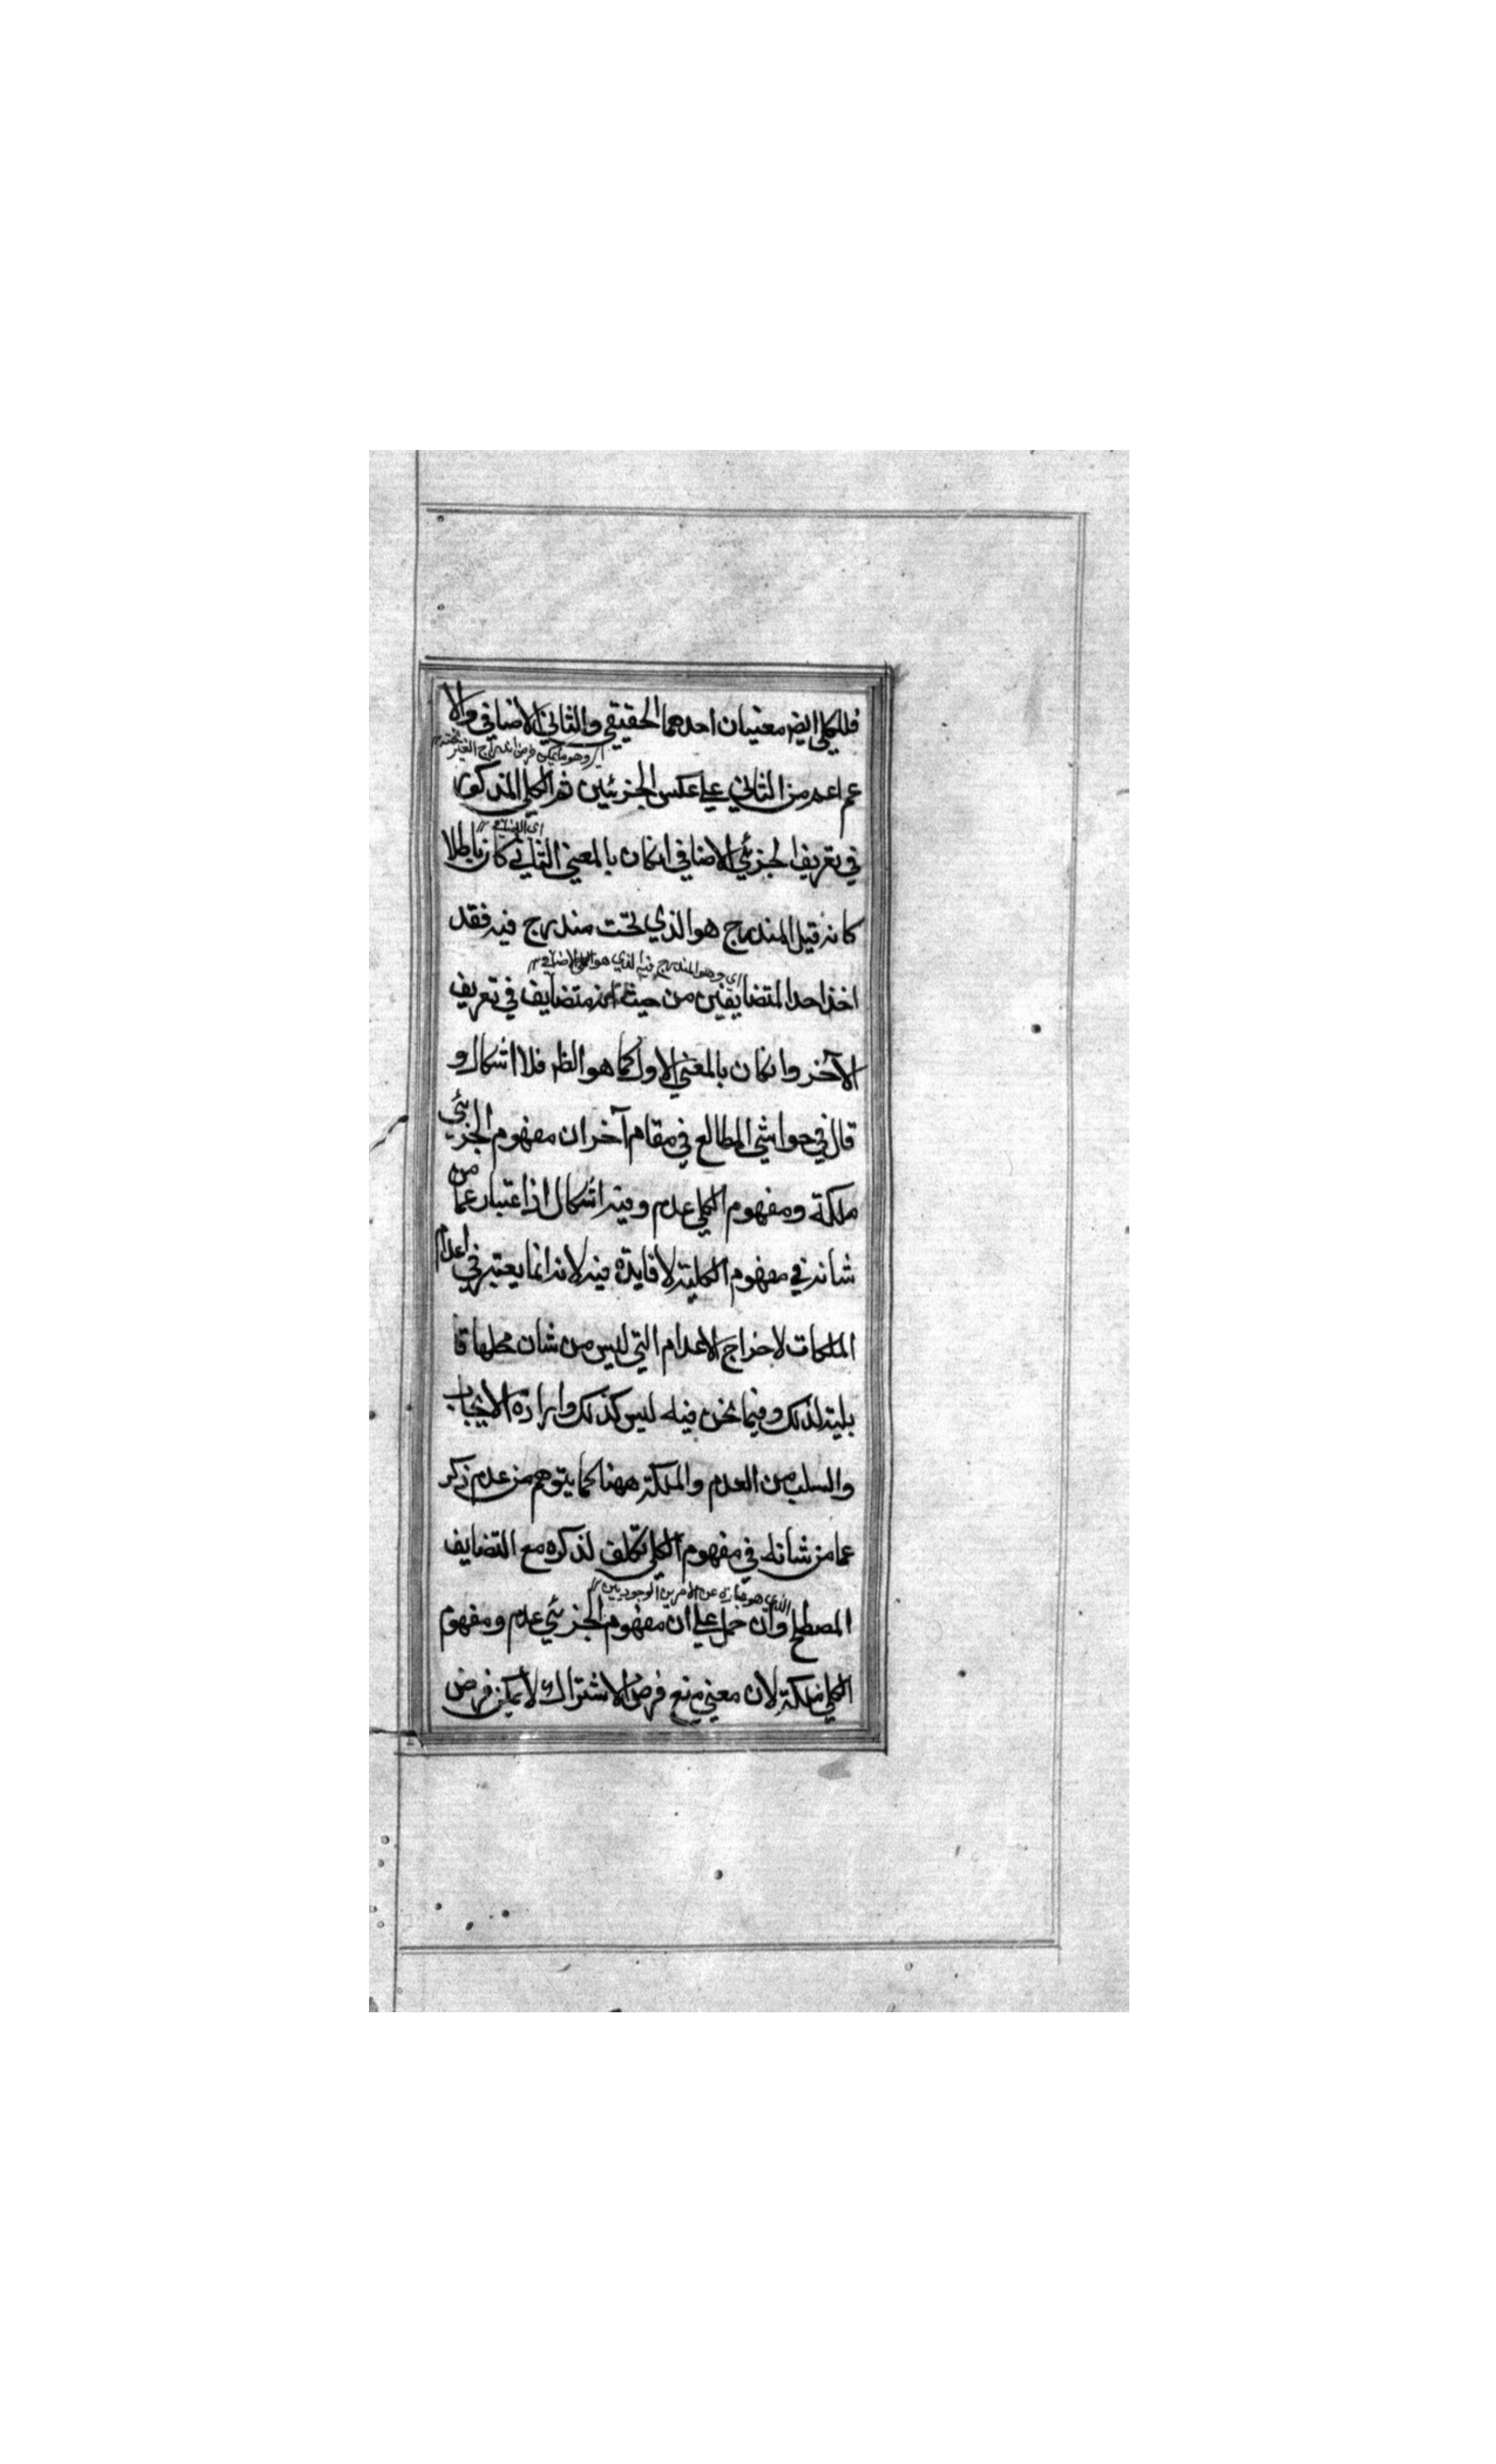 فللكلي ايضا معنيان احدهما الحقيقي والثاني الاضافي والا
اي وهو ما يمكن فرض اندراج الغير تحته
عم اعم من الثاني علي عكس الجزئيين ثم الكلي المذكور
اي الاضافي
في تعريف الجزئي الاضافي انكان بالمعني الثاني كان باطلا
كانه قيل المندرج هو الذي تحت مندرج فيه فقد
اي وهو المندرج فيه الذي هو الكلي الاضافي
اخذ احد المتضايفين من حيث انه متضايف في تعريف
الآخر وانكان بالمعني الاول كما هو الظ فلا اشكال و
قال في حواشي المطالع في مقام آخر ان مفهوم الجزئي
ملكة ومفهوم الكلي عدم وفيه اشكال اذ اعتبار عما من
شانه في مفهوم الكلية لا فايدة فيه لانه انما يعتبر في اعدام
الملكات لاخراج الاعدام التي ليس من شان محلها قا
بلية لذلك وفيما نحن فيه ليس كذلك وارادة الايجاب
والسلب من العدم والملكة ههنا كما يتوهم من عدم ذكر
عما من شانه في مفهوم الكلي تكلف لذكره مع التضايف
الذي هو عبارة عن الامرين الوجوديين
المصطلح وان حمل علي ان مفهوم الجزئي عدم ومفهوم
الكلي ملكة لان معني منع فرض الاشتراك لا يمكن فرض